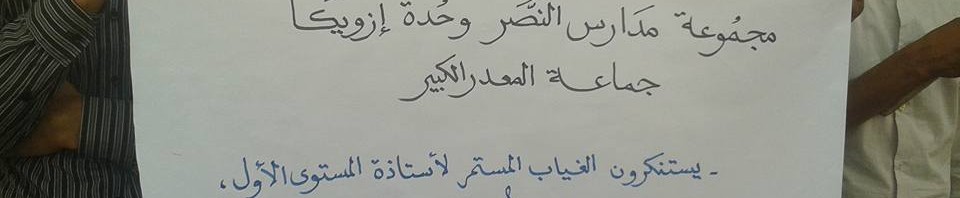 مجمُوعة مَدَارس النصَّر وحْدة إزويكا
جماعة المعدر الكبير
- يستنكرون الغياب المستمر لأستاذة المستوى الأول،